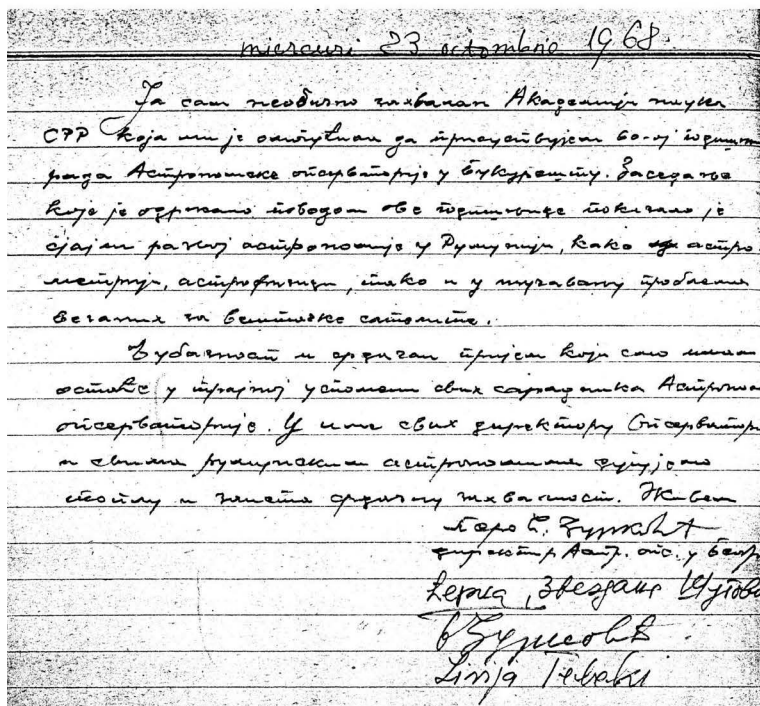 miercuri 23 octombrie 1968.
Ја сам необично захвалан Академији наука
СРР која ми је омогућила да присуствујем 60-ој годишњ
рада Астрономске опсерваторије у Букурешту. Заседање
које је одржано поводом ове годишњице показало је
сјајан развој астрономије у Румунији, како у астро
метрији, астрофизици, тако и у изучавању проблема
везаних за вештачке сателите.
Љубазност и срдачан пријем који смо имали
остаће у трајној успомени свих сарадника Астроно
опсерваторије. У име свих директору Опсерватори
и свима румунским астрономима дугујемо
топлу и заиста срдачну захвалност.
директор Астр. опс. у Беогр